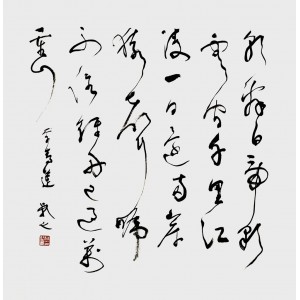 朝辭白帝彩
雲間千里江
陵一日還兩岸
猿聲啼
不住輕舟已過萬
重山